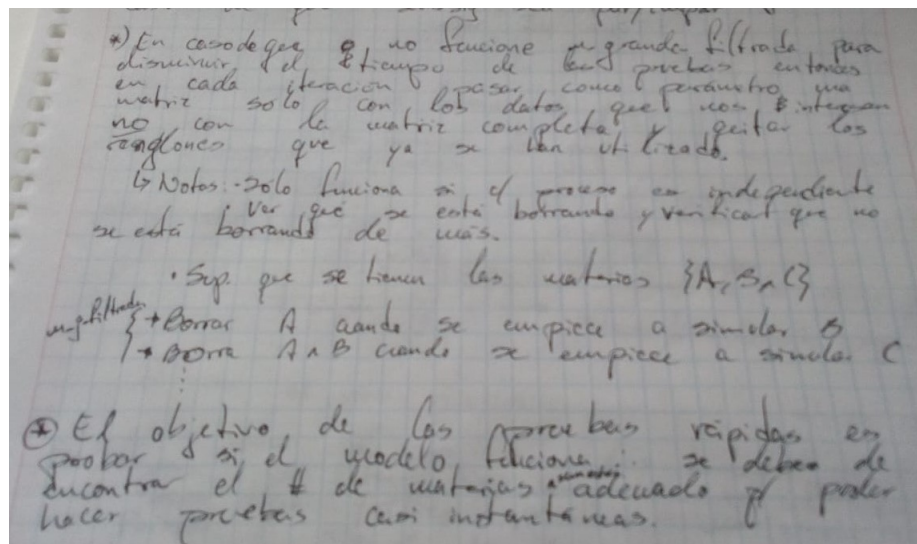 *) En caso de que no funcione m_grande_filtrada para
disminuir el tiempo de las pruebas entonces
en cada iteración pasar como parámetro una
matriz solo con los datos que nos
no con la matriz completa y quitar los
renglones que ya se han utilizado.
↳ Notas: - Sólo funciona si c/ proceso es independiente
· Ver que se está borrando y verificar que no
se está borrando de más.
· Sup. que se tienen las materias {A, B, C}
→ Borrar A cuando se empiece a simular B
→ Borra A B cuando se empiece a simular C
⋮
* El objetivo de las pruebas rápidas es
probar si el modelo funciona ∴ se debe de
encontrar el # de materias adecuado p/ poder
hacer pruebas casi instantáneas.